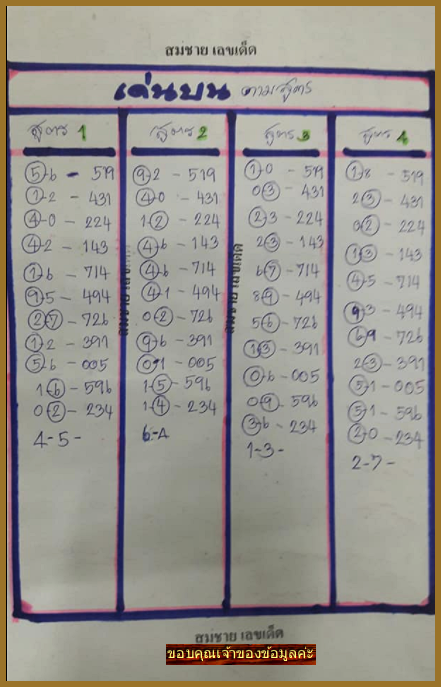 สมชาย เลขเด็ด
เด่นบน ตามสูตร
สูตร 1
5-6 - 519
1-2 - 431
4-0 - 224
4-2 - 143
1-6 - 714
9-5 - 494
2-7 - 726
1-2 - 391
5-6 - 005
1-6 - 596
0-2 - 234
4-5-
สูตร 2
9-2 - 519
4-0 - 431
1-2 - 224
4-6 - 143
4-6 - 714
4-1 - 494
0-2 - 726
9-6 - 391
0-1 - 005
1-5 - 596
1-4 - 234
6-4
สูตร 3
1-0 - 519
0-3 - 431
2-3 - 224
2-3 - 143
6-7 - 714
8-9 - 494
5-6 - 726
1-3 - 391
0-6 - 005
0-9 - 596
3-6 - 234
1-3-
สูตร 4
1-8 - 519
2-3 - 431
0-2 - 224
1-3 - 143
4-5 - 714
9-3 - 494
6-9 - 726
2-3 - 391
5-1 - 005
5-1 - 596
2-0 - 234
2-7-
สมชาย เลขเด็ด
สมชาย เลขเด็ด
สมชาย เลขเด็ด
ขอบคุณเจ้าของข้อมูลค่ะ